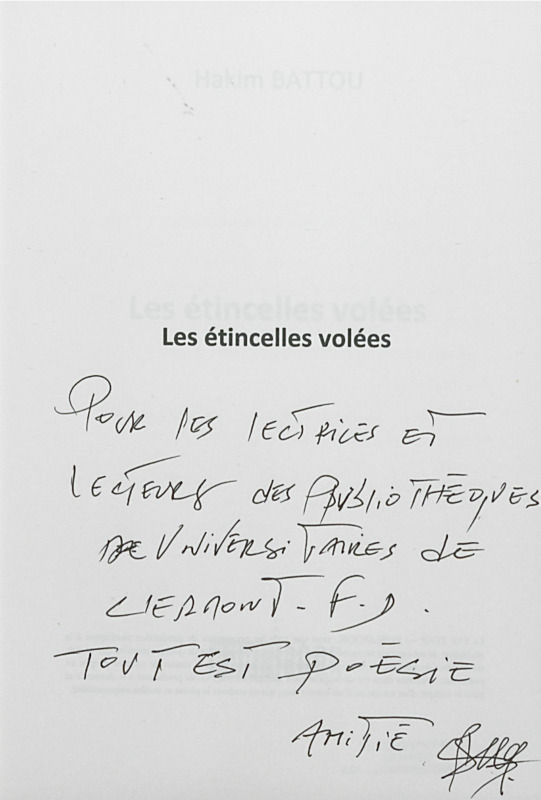 Hakim BATTOU
Les étincelles volées
Les étincelles volées
POUR LES LECTRICES ET
LECTEURS DES BIBLIOTHÈQUES
UNIVERSITAIRES DE
CLERMONT-F.D.
TOUT EST POÉSIE
AMITIÉ